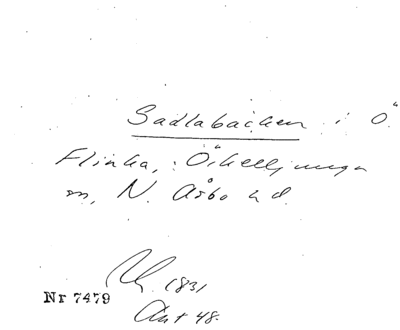 Sadlabacken i Ö.
Flinka, Örkelljunga
sn, N. Åsbo hd.
1831
Nr 7479
Akt 48.